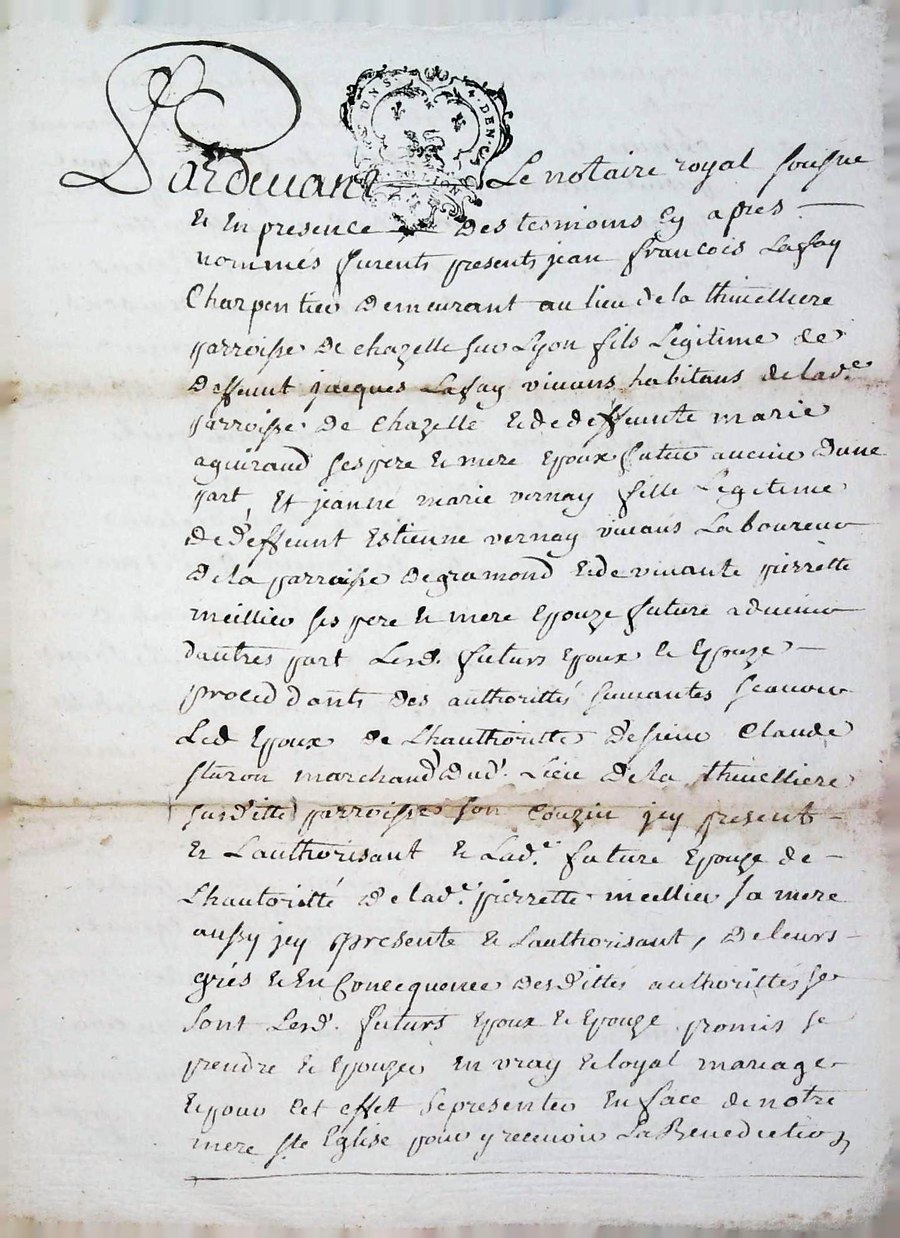 Pardevant Le notaire royal sousne
et En presence Des tesmoins Cy apres
nommés furents presents jean francois Lafay
Charpentier Demeurant au lieu de la thivelliere
parroisse De chazelle sur Lyon fils Legitime de
Deffeunt jacques Lafay vivans habitans de lad.e
parroisse De Chazelle et de deffeunte marie
aguiraud ses pere et mere Epoux futur avenir Dune
part, Et jeanne marie vernay fille Legitime
de Deffeunt Estienne vernay vivans Laboureur
De la parroisse Degramond et de vivante pierrette
meillier ses pere et mere Epouze future advenir
dautres part Lesd. futurs Epoux et Epouze
proceddants Des authorittés suivantes scavoir
Led Epoux de Lhauthoritte De sieur Claude
sturon marchand Dud. Lieu De la thivelliere
susditte parroisse son Couzin jcy present
et Lauthorisant et Lad.e future Epouze de
Lhautoritté De lad.e pierrette meillier sa mere
aussy jcy presente et Lauthorisant, De leurs
grés et En Concequence Desdittes authorittés se
sont Lesd. futurs Epoux et Epouze promis se
prendre et Epouzer En vray et loyal mariage
et pour Cet effet se presenter En face de notre
mere ste Eglise pour y recevoir La Benediction